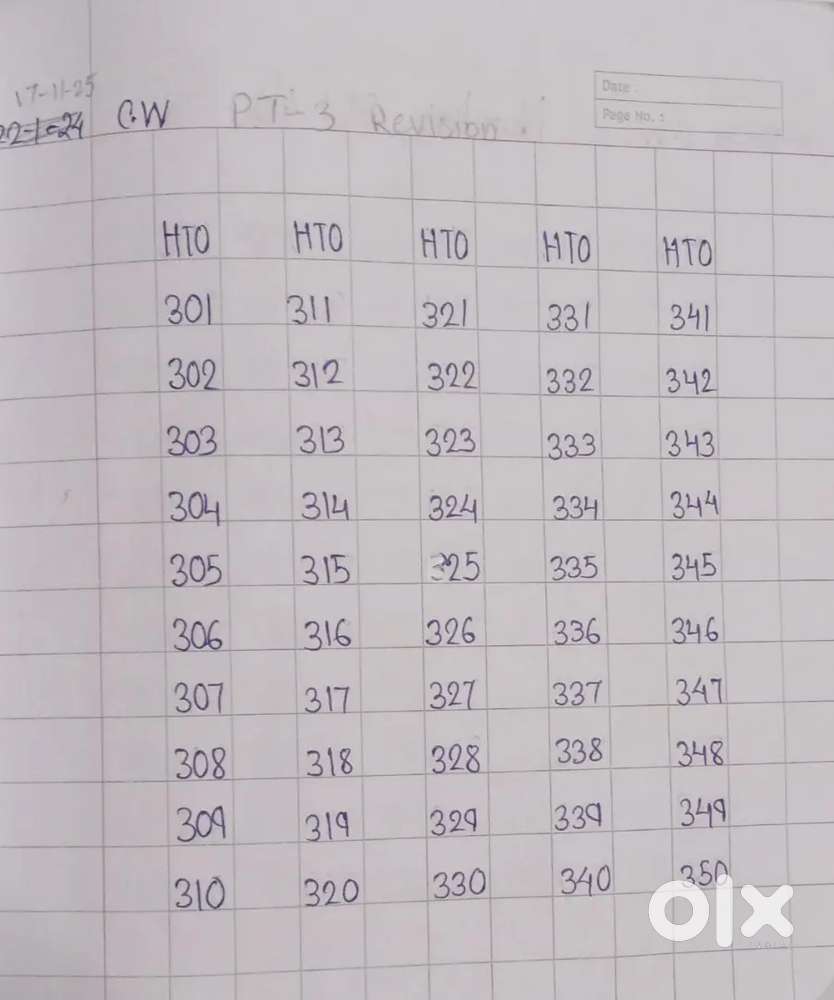 17-11-25
22-1-24 C.W P.T-3 Revision.
Date :
Page No. :
HTO HTO HTO HTO HTO
301 311 321 331 341
302 312 322 332 342
303 313 323 333 343
304 314 324 334 344
305 315 325 335 345
306 316 326 336 346
307 317 327 337 347
308 318 328 338 348
309 319 329 339 349
310 320 330 340 350
olx